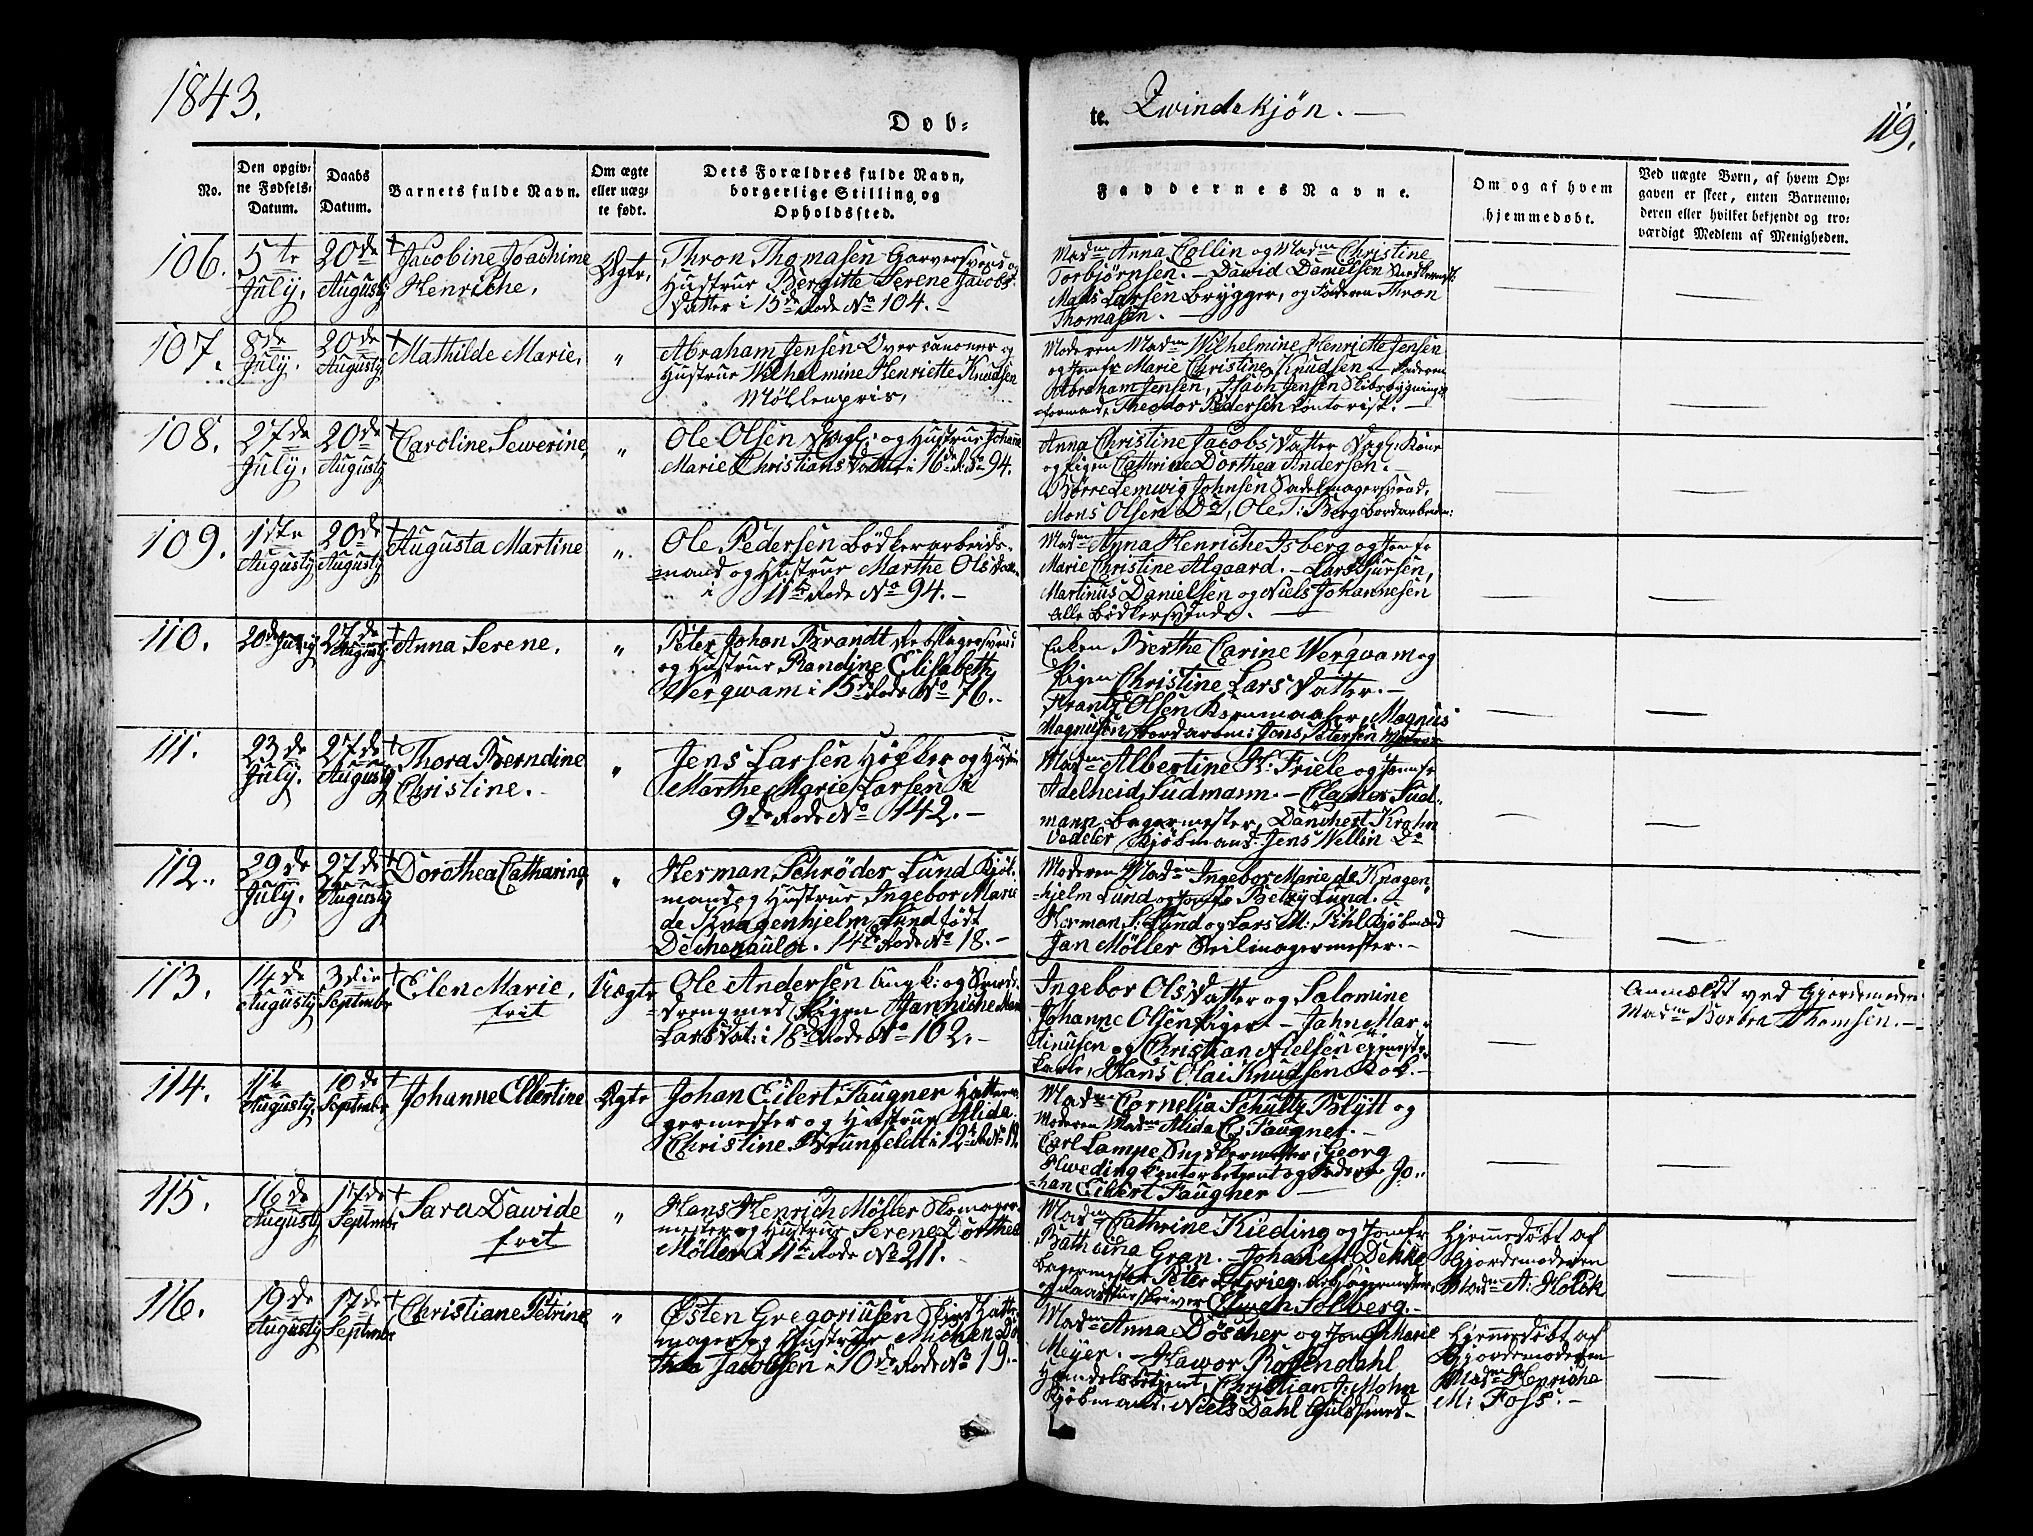 1843.
Døb-
te. Qvindekjøn. —
119.
No.
Den opgiv-
ne Fødsels-
Datum.
Daabs
Datum.
Barnets fulde Navn.
Om ægte
eller uæg-
te født.
Dets Forældres fulde Navn,
borgerlige Stilling og
Opholdssted.
Faddernes Navne.
Om og af hvem
hjemmedøbt.
Ved uægte Børn, af hvem Op-
gaven er skeet, enten Barnemo-
deren eller hvilket bekjendt og tro-
værdigt Medlem af Menigheden.
106.
5te
July.
20de
Augusty
Jacobine Joachime
Henriche.
Ægte,
Thron Thomasen Garversvend og
Hustrue Bergitte Serene Jacobs
Datter i 15de Rode No 104. —
Madm Anna Collin og Madm Christine
Torbjørnsen. — Dawid Danielsen
Mads Larsen Brygger, og Faderen Thron
Thomasen. —
107.
8de
July.
20de
Augusty
Mathilde Marie,
"
Abraham Jensen og
Hustrue Wilhelmine Henriette Knudsen
Møllenpris,
Moderen Madm Wilhelmine Henriette Jensen
og Jomfr Marie Christine Knudsen — Faderen
Abraham Jensen, Jensen Skibsbygnings
formand, Theodor Pedersen Contorist. —
108.
27de
July.
20de
Augusty
Caroline Sewerine,
"
Ole Olsen Dagl: og Hustrue Johanne
Marie Christians Datter i 16de R. No 94.
Anna Christine Jacobs Datter Dagl: Kone
og Pigen Cathrine Dorthea Andersen. —
Børre Lemwig Johnsen Sadelmagersvend,
Mons Olsen Do, Ole T: Berg Bordarbeider:
109.
1ste
Augusty
20de
Augusty
Augusta Martine
"
Ole Pedersen Bødkerarbeids-
mand og Hustrue Marthe Ols Datter
i 11te Rode No 94. —
Madm Anna Henriche Isberg og Jomfr
Marie Christine Algaard. — Lars Sjursen,
Martinus Danielsen og Niels Johannesen
Alle Bødkersvende. —
110.
20de July
27de
Augusty
Anna Serene,
"
Peter Johan Brandt Rebslagersvend
og Hustrue Randine Elisabeth
Wergwam i 15de Rode No 76. —
Enken Berthe Carine Wergwam og
Pigen Christine Lars Datter. —
Frantz Olsen, Magnus
Magnusen, Bordarbei: Jens Petersen Matros
111.
23de
July.
27de
Augusty
Thora Berndine
Christine. —
"
Jens Larsen Høkker og Hustrue
Marthe Marie Larsen i
9de Rode No 142. —
Madm Albertine H: Friele og Jomfr
Adelheid Sudmann. — Clamer Sud-
mann Bagermester, Danchert Krohn
Vedeler Kjøbmand. Jens Wellin Do
112.
29de
July.
27de
Augusty
Dorothea Catharina
"
Herman Schrøder Lund Kjøb-
mand og Hustrue Ingebor Marie
de Knagenhjelm Lund født
Dechenaulor. 14de Rode No 18. —
Moderen Madm Ingebor Marie de Knagen-
hjelm Lund og Jomfr Betzy Lund. —
Herman S. Lund og Lars M: Pihl Kjøbmænd
Jan Møller Seilmagermester. —
113.
14de
Augusty
3die
Septembr
Elen Marie,
frit
Uægte
Ole Andersen Ungk: og Smed-
Drengmed Pigen Hanniche Marie
Lars Dat: i 18de Rode No 102. —
Ingebor Ols Datter og Salomine
Johanne Olsen Piger. — John Mar-
tinusen og Christian Nielsen
Hans Olai Knudsen Kok. —
Anmældt ved Gjordemoderen
Madm Barbra Thomsen. —
114.
11te
Augusty
10de
Septembr
Johanne Ellertine
Ægte
Johan Eilert Faugner Hattema-
germester og Hustrue Alida
Christine Brunfeldt i 12te R. No 12
Madm Cornelia Schultz Blytt og
Moderen Madm Alida C: Faugner. —
Carl Lampe Snedkermester, Georg
Hweding Contorbetjent og Faderen Jo-
han Eilert Faugner —
115.
16de
Augusty
17de
Septembr
Sara Dawide
frit
"
Hans Henrich Møller Skomager-
mester og Hustrue Serene Dorthea
Møller i 11te Rode No 211.
Madm Cathrine Kieding og Jomfr
Bathzeba Gran. — Johan M. Dekke
Bagermester Peter Rebslagermester
og Solberg. —
Hjemmedøbt af
Gjordemoderen
Madm A: Holck
116.
19de
Augusty
17de
Septembr
Christiane Petrine,
"
Østen Gregoriusen Skindhatte-
mager og Hustrue Michen Do-
thea Jacobsen i 10de Rode No 19. —
Madm Anna Døscher og Jomf Marie
Meyer. — Hawor Rosendahl
Handelsbetjent, Christian J: Mohn
Kjøbmand. Niels Dahl Guldsmed —
Hjemmedøbt af
Gjordemoderen
Madm Henriche
M: Foss. —